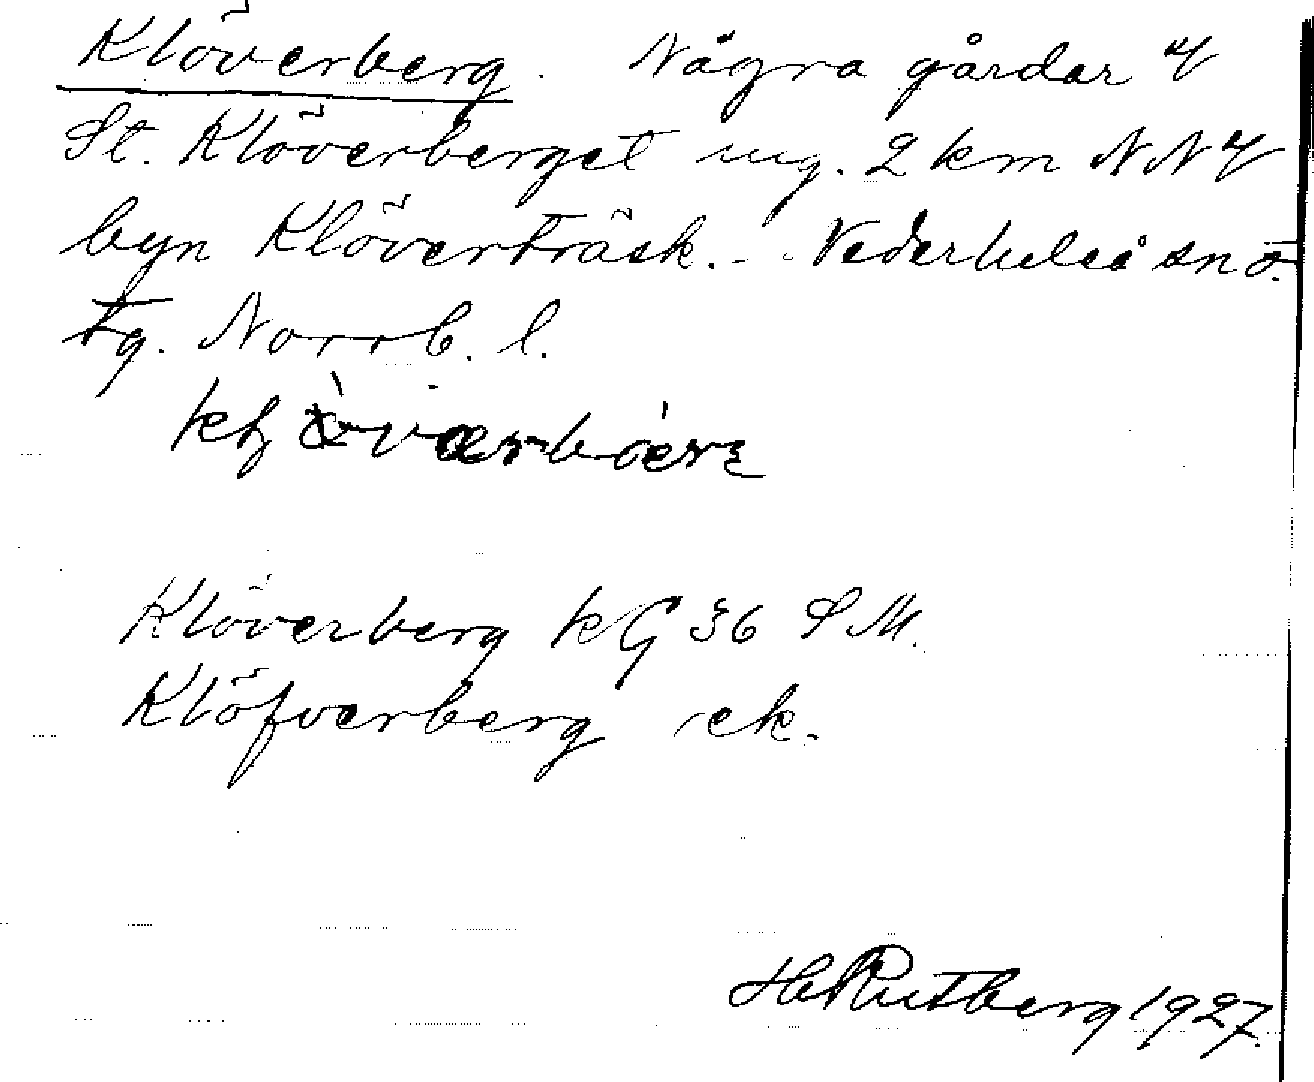 Klöverberg. Några gårdar å
St. Klöverberget ung. 2 km NNV
byn Klöverträsk. Nederluleå sn ö.
tg. Norrb. l.
Klöverberg kG 36 SM.
Klöfverberg ek.
H Rutberg 1927.